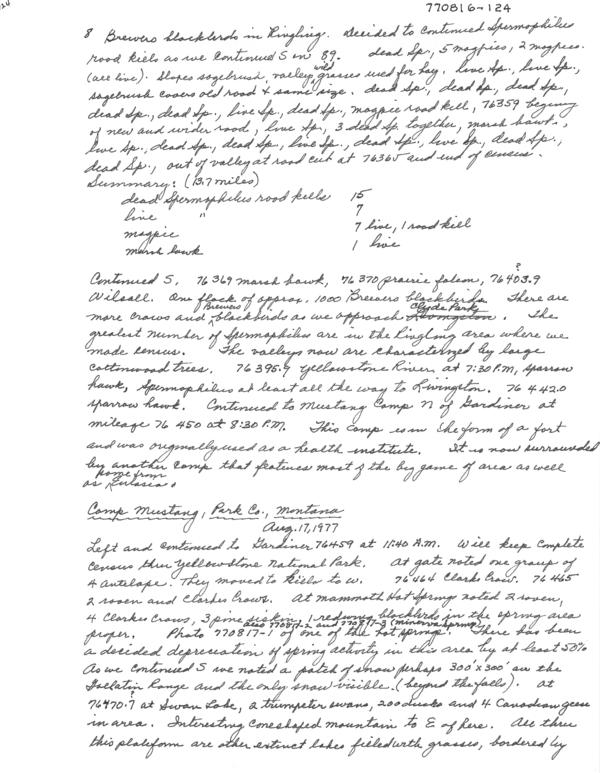 770816-124
8 Brewers blackbirds in Ringling. Decided to continued Spermophilus
road kiels as we continued S on 89. dead Sp., 5 magpies, 2 magpies.
(all live). Slopes sagebrush, valley wild grasses used for hay. live Sp., live Sp.,
sagebrush covers old road & same size. dead Sp., dead Sp., dead Sp.,
dead Sp., dead Sp., live Sp., dead Sp., magpie road kill, 76359 begining
of new and wider road, live Sp., 3 dead Sp. together, marsh hawk.,
live Sp., dead Sp., dead Sp., live Sp., dead Sp., live Sp., dead Sp.,
dead Sp., out of valley at road cut at 76365 and end of census.
Summary: (13.7 miles)
dead Spermophilus road kills 15
live " 7
magpie 7 live, 1 road kill
marsh hawk 1 live
Continued S, 76369 marsh hawk, 76370 prairie falcon, 76403.9 ?
Wilsall. One flock of approx. 1000 Brewers blackbirds. There are
more crows and Brewers blackbirds as we approach Clyde Park. The
greatest number of Spermophilus are in the Ringling area where we
made census. The valleys now are characterized by large
cottonwood trees. 76395.9 Yellowstone River at 7:30 P.M, sparrow
hawk, Spermophilus at least all the way to Livingston. 76442.0
sparrow hawk. Continued to Mustang Camp N of Gardiner at
mileage 76450 at 8:30 P.M. This camp is in the form of a fort
and was originally used as a health institute. It is now surrounded
by another camp that features most of the big game of area as well
as some from Eurasia.
Camp Mustang, Park Co., Montana
Aug. 17, 1977
Left and continued to Gardiner 76459 at 11:40 A.M. Will keep complete
census thru Yellowstone National Park. At gate noted one group of
4 antelope. They moved to hills to w. 76464 Clarks Crow. 76465
2 raven and Clarkes Crows. At Mammoth Hot Springs noted 2 raven,
4 Clarkes Crows, 3 pine siskin, 1 redwing blackbird in the spring area
proper. Photo 770817-1 also 770817-2 and 770817-3 (minerva spring) of one of the hot springs. There has been
a decided depreciation of spring activity in this area by at least 50%
As we continued S we noted a patch of snow perhaps 300' x 300' on the
Gallatin Range and the only snow visible. (beyond the falls). At
76470.7 at Swan Lake, a trumpeter swans, 200 ducks and 4 Canadian geese
in area. Interesting cone shaped mountain to E of here. All thru
this plateform are other extinct lakes filled with grasses, bordered by